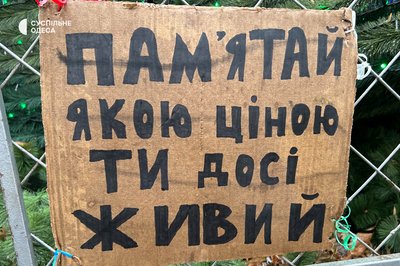 СУСПІЛЬНЕ
ОДЕСА
ПАМ'ЯТАЙ
ЯКОЮ ЦІНОЮ
ТИ ДОСІ
ЖИВИЙ